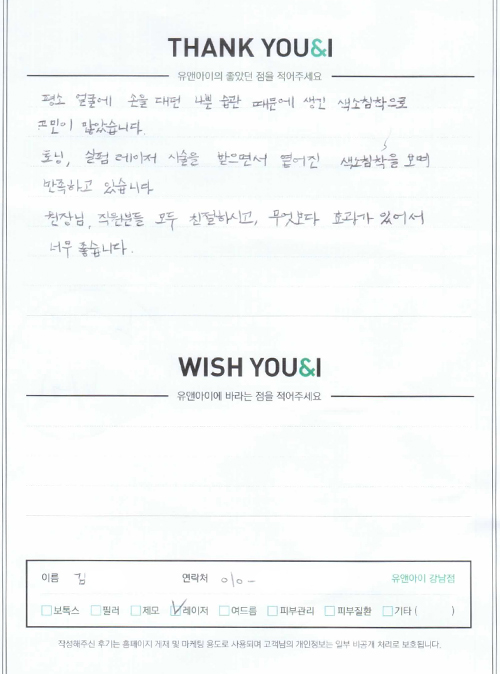 THANK YOU&I
유앤아이의 좋았던 점을 적어주세요
평소 얼굴에 손을 대던 나쁜 습관 때문에 생긴 색소침착으로
고민이 많았습니다.
토닝, 실펌 레이저 시술을 받으면서 옅어진 색소침착을 보며
만족하고 있습니다
원장님, 직원분들 모두 친절하시고, 무엇보다 효과가 있어서
너무 좋습니다.
WISH YOU&I
유앤아이에 바라는 점을 적어주세요
이름 김 연락처 010- 유앤아이 강남점
보톡스 필러 제모 레이저 여드름 피부관리 피부질환 기타 ( )
작성해주신 후기는 홈페이지 게재 및 마케팅 용도로 사용되며 고객님의 개인정보는 일부 비공개 처리로 보호됩니다.